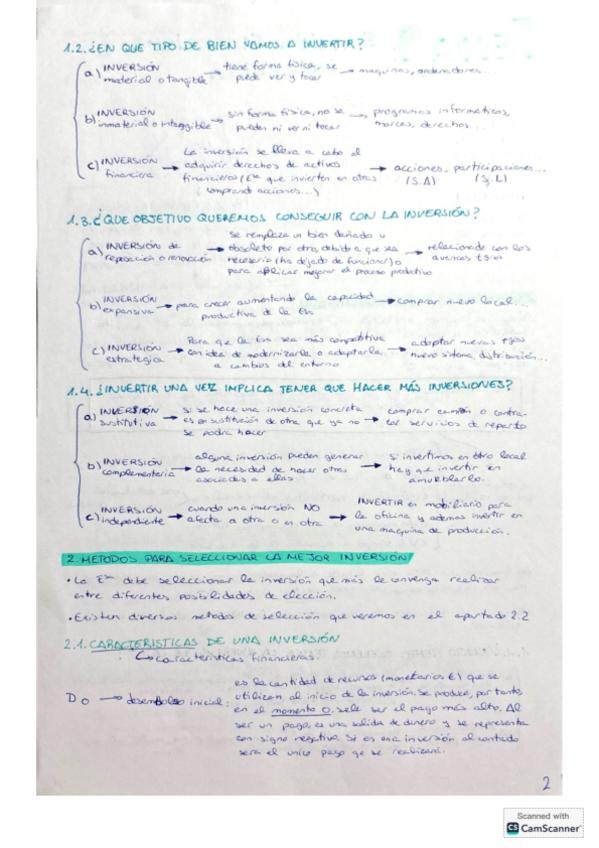 1.2. ¿EN QUE TIPO DE BIEN VAMOS A INVERTIR?
a) INVERSIÓN material o tangible → tiene forma física, se puede ver y tocar → maquinas, ordenadores...
b) INVERSIÓN inmaterial o intangible → sin forma física, no se pueden ni ver ni tocar → programas informaticos, marcas, derechos...
c) INVERSIÓN financiera → La inversión se lleva a cabo al adquirir derechos de activos financieros (Esa que invierten en otras comprando acciones...) → acciones, participaciones... (S.A) (S.L)
1.3. ¿QUE OBJETIVO QUEREMOS CONSEGUIR CON LA INVERSIÓN?
a) INVERSIÓN de reposición o renovación → se remplaza un bien dañado u obsoleto por otro, debido a que sea necesario (ha dejado de funcionar) o para mejorar el proceso productivo → relacionado con los avances
b) INVERSIÓN expansiva → para crecer aumentando la capacidad productiva de la Esa → comprar nuevo local...
c) INVERSIÓN estrategica → Para que la Esa sea más competitiva con idea de modernizarla o adaptarla a cambios del entorno → adoptar nuevas nuevo sistema, distribución...
1.4. ¿INVERTIR UNA VEZ IMPLICA TENER QUE HACER MÁS INVERSIONES?
a) INVERSIÓN sustitutiva → si se hace una inversión concreta es en sustitución de otra que ya no se podra hacer → comprar camión o contratar servicios de reparto
b) INVERSIÓN complementaria → alguna inversión pueden generar la necesidad de hacer otras asociadas a ellas → si invertimos en otro local hay que invertir en amueblarlo.
c) INVERSIÓN independiente → cuando una inversión NO afecta a otra o en otra → INVERTIR en mobiliario para la oficina y ademas invertir en una maquina de producción.
2. METODOS PARA SELECCIONAR LA MEJOR INVERSIÓN
• La Esa debe seleccionar la inversión que más le convenga realizar
entre diferentes posibilidades de elección.
• Existen diversos metodos de selección que veremos en el apartado 2.2
2.1. CARACTERISTICAS DE UNA INVERSIÓN
↳ características financieras.
Do → desembolso inicial:
es la cantidad de recursos (monetarios €) que se
utilizan al inicio de la inversión. Se produce, por tanto,
en el momento 0, sele ser el pago más alto. Al
ser un pago, es una salida de dinero y se representa
con signo negativo. Si es una inversión al contado
será el unico pago que se realizará.
2
Scanned with
CS CamScanner